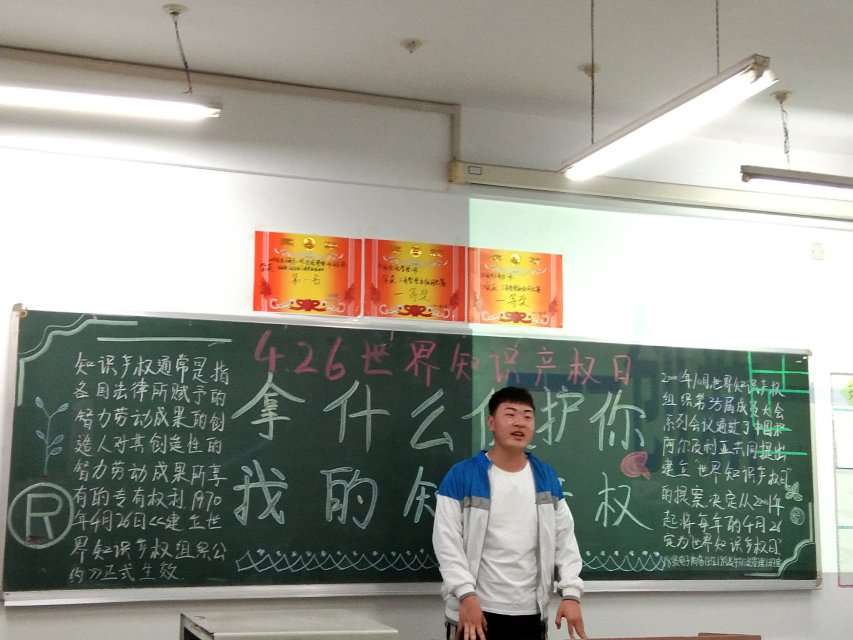 第一名
一等奖
一等奖
4.26世界知识产权日
拿什么 护你
我的知 产权
知识产权通常是指
各国法律所赋予的
智力劳动成果的创
造人对其创造性的
智力劳动成果所享
有的专有权利.1970
年4月26日<<建立世
界知识产权组织公
约>>正式生效
R
世界知识产权
组织第35届成员大会
系列会议通过了中国和
阿尔及利亚共同提出
建立"世界知识产权日"
的提案.决定从2001年
起将每年的4月26
定为"世界知识产权日"